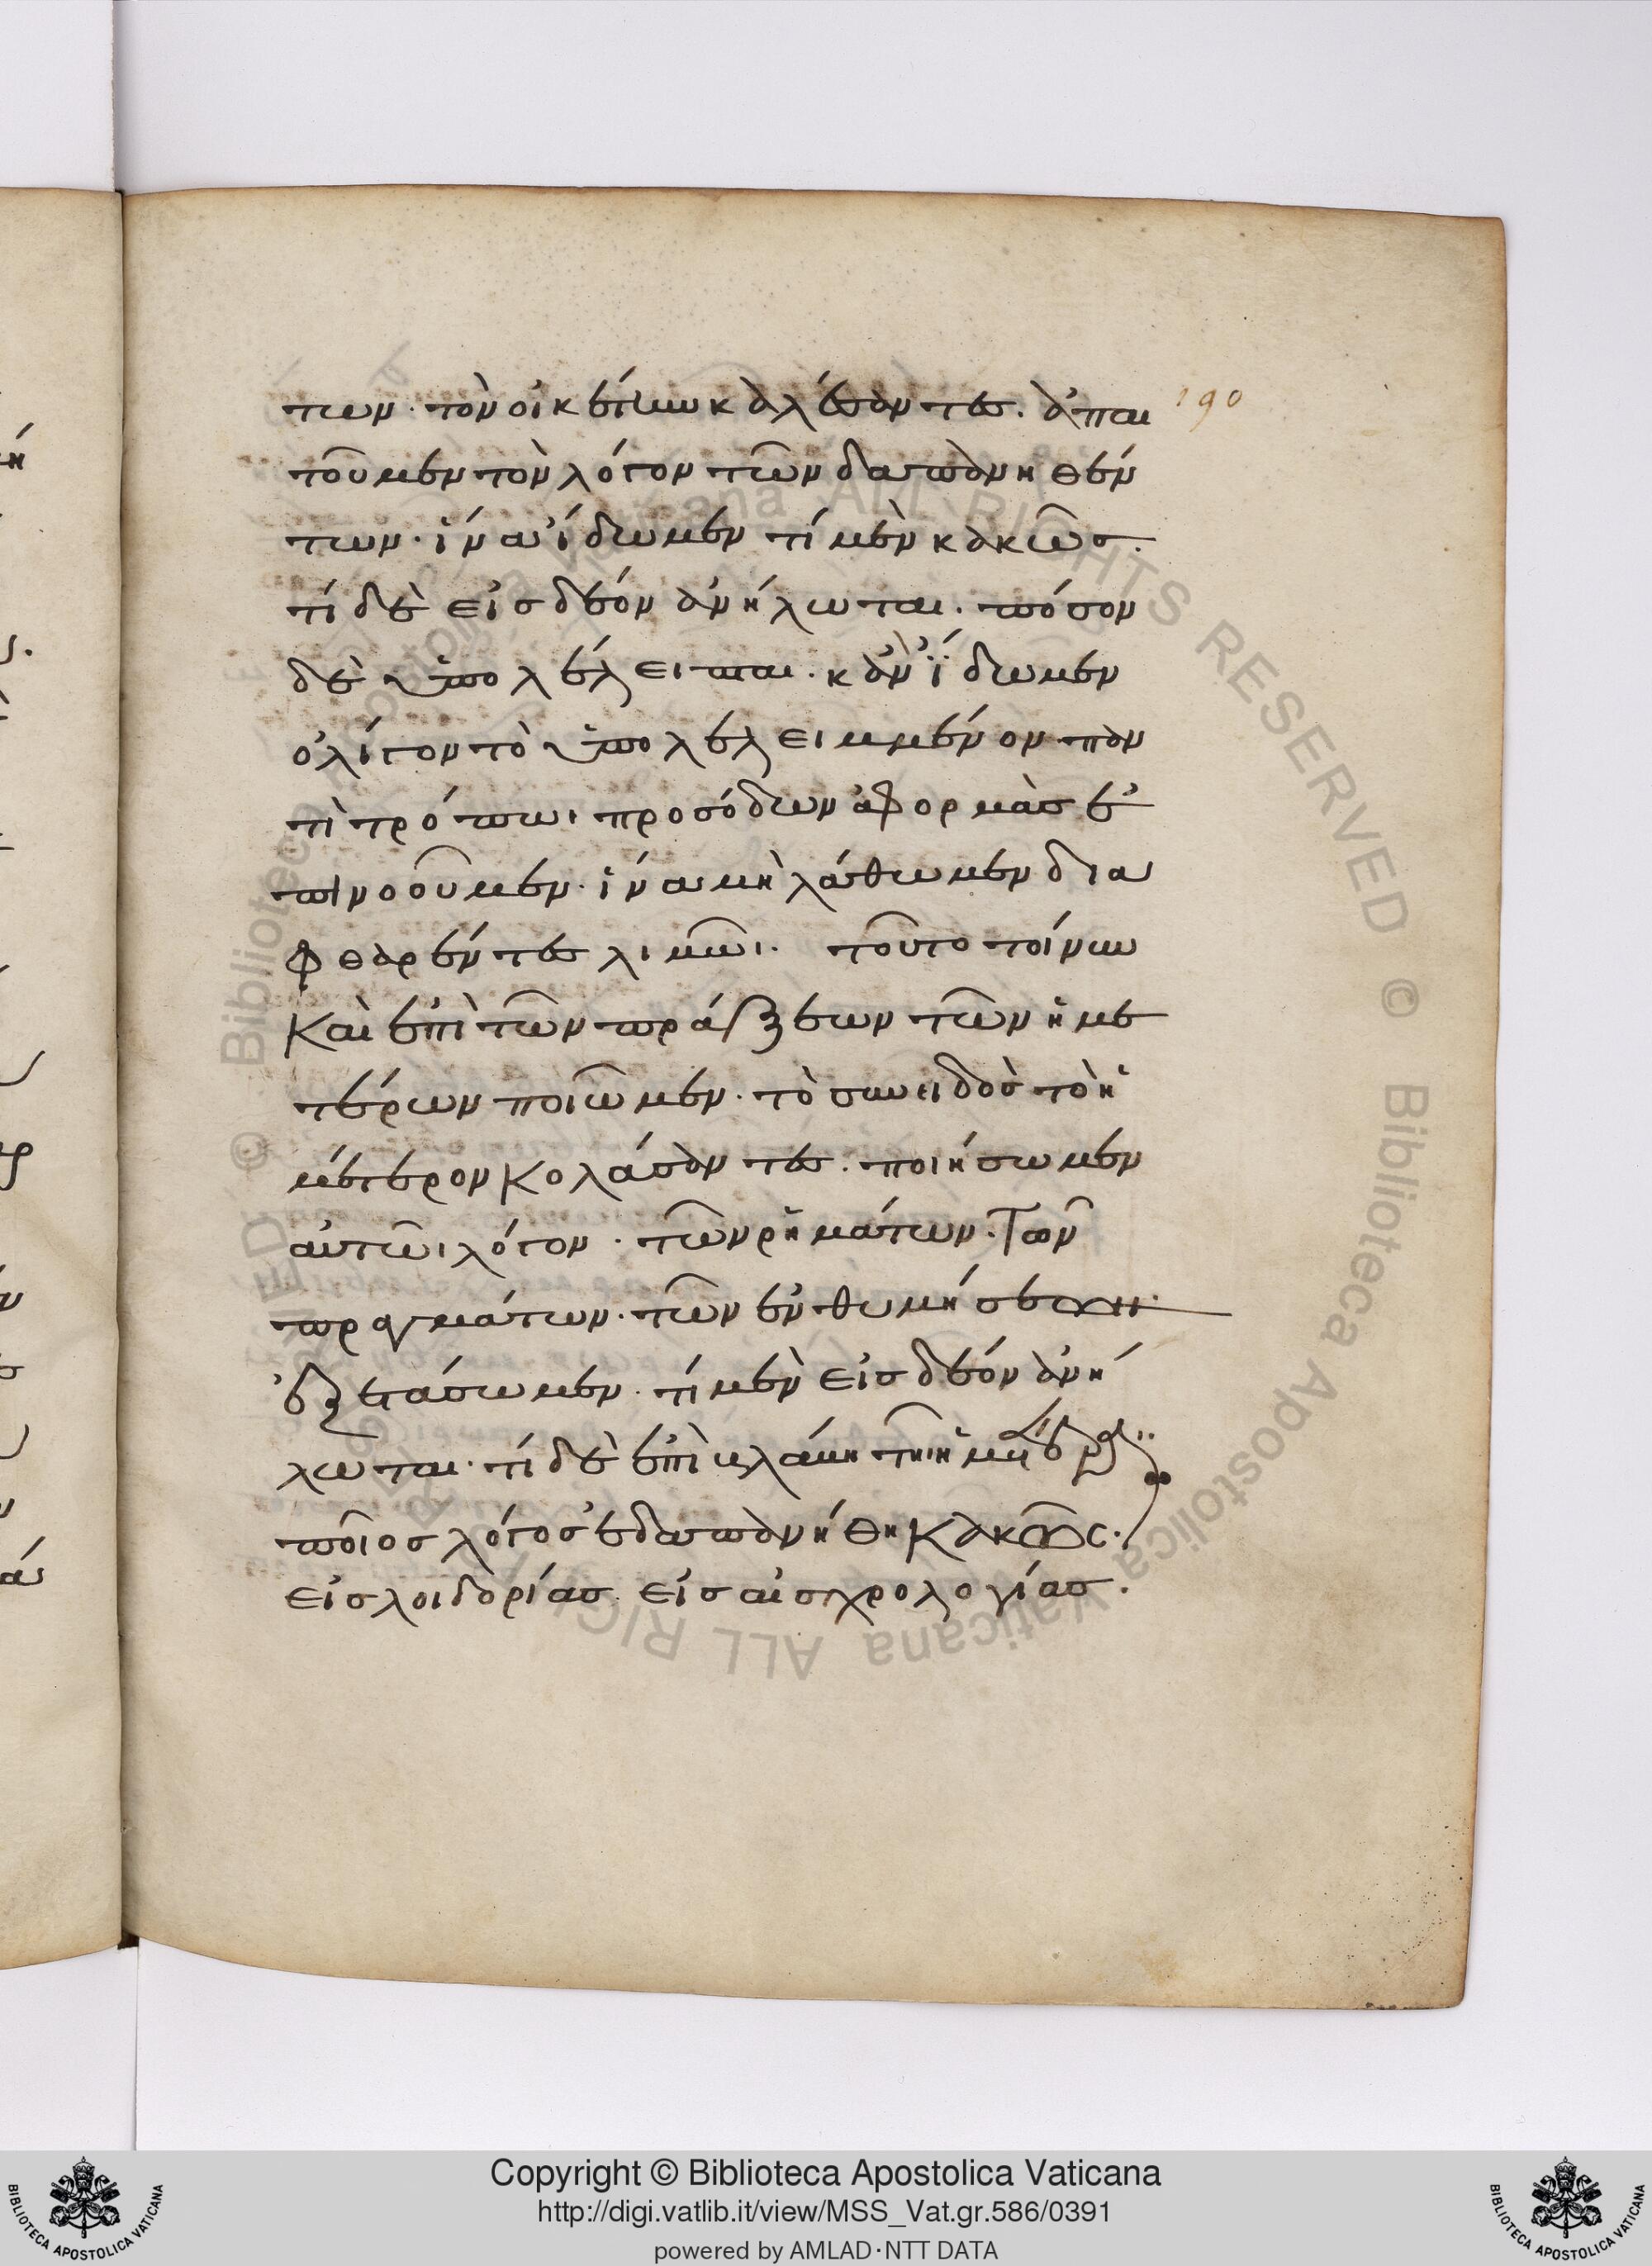 190
των· τὸν οἰκέτην καλέσαντες. ἀπαι
τοῦμεν τὸν λόγον τῶν δαπανηθέν
των· ἵνα ἴδωμεν τί μὲν κακῶς.
τί δὲ εἰς δέον ἀνήλωται. πόσον
δὲ ὑπολέλειπται. κἂν ἴδωμεν
ὀλίγον τὸ ὑπολελειμμένον παν
τὶ τρόπωι προσόδων ἀφορμὰς ἐ
πινοοῦμεν. ἵνα μὴ λάθωμεν δια
φθαρέντες λιμῶι. τοῦτο τοίνυν
καὶ ἐπὶ τῶν πράξεων τῶν ἡμε
τέρων ποιῶμεν. τὸ συνειδὸς τὸ ἡ
μέτερον κολάσαντες. ποιήσωμεν
αὐτῶι λόγον. τῶν ρημάτων. τῶν
πραγμάτων. τῶν ἐνθυμήσεων.
ἐξετάσωμεν. τί μὲν εἰς δέον ἀνή
λωται. τί δὲ ἐπὶ βλάβη τῆι ἡμετέρα
ποῖος λόγος ἐδαπανήθη κακῶς.
εἰς λοιδορίας. εἰς αἰσχρολογίας.
Copyright © Biblioteca Apostolica Vaticana
http://digi.vatlib.it/view/MSS_Vat.gr.586/0391
powered by AMLAD·NTT DATA
BIBLIOTECA APOSTOLICA VATICANA
BIBLIOTECA APOSTOLICA VATICANA
© Biblioteca Apostolica Vaticana ALL RIGHTS RESERVED © Biblioteca Apostolica Vaticana ALL RIGHTS RESERVED